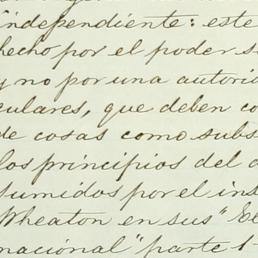 independiente: este
hecho por el poder s
y no por una autori
culares, que deben co
de cosas como subs
los principios del d
sumidos por el ins
Wheaton en sus "Ele
nacional" parte 1